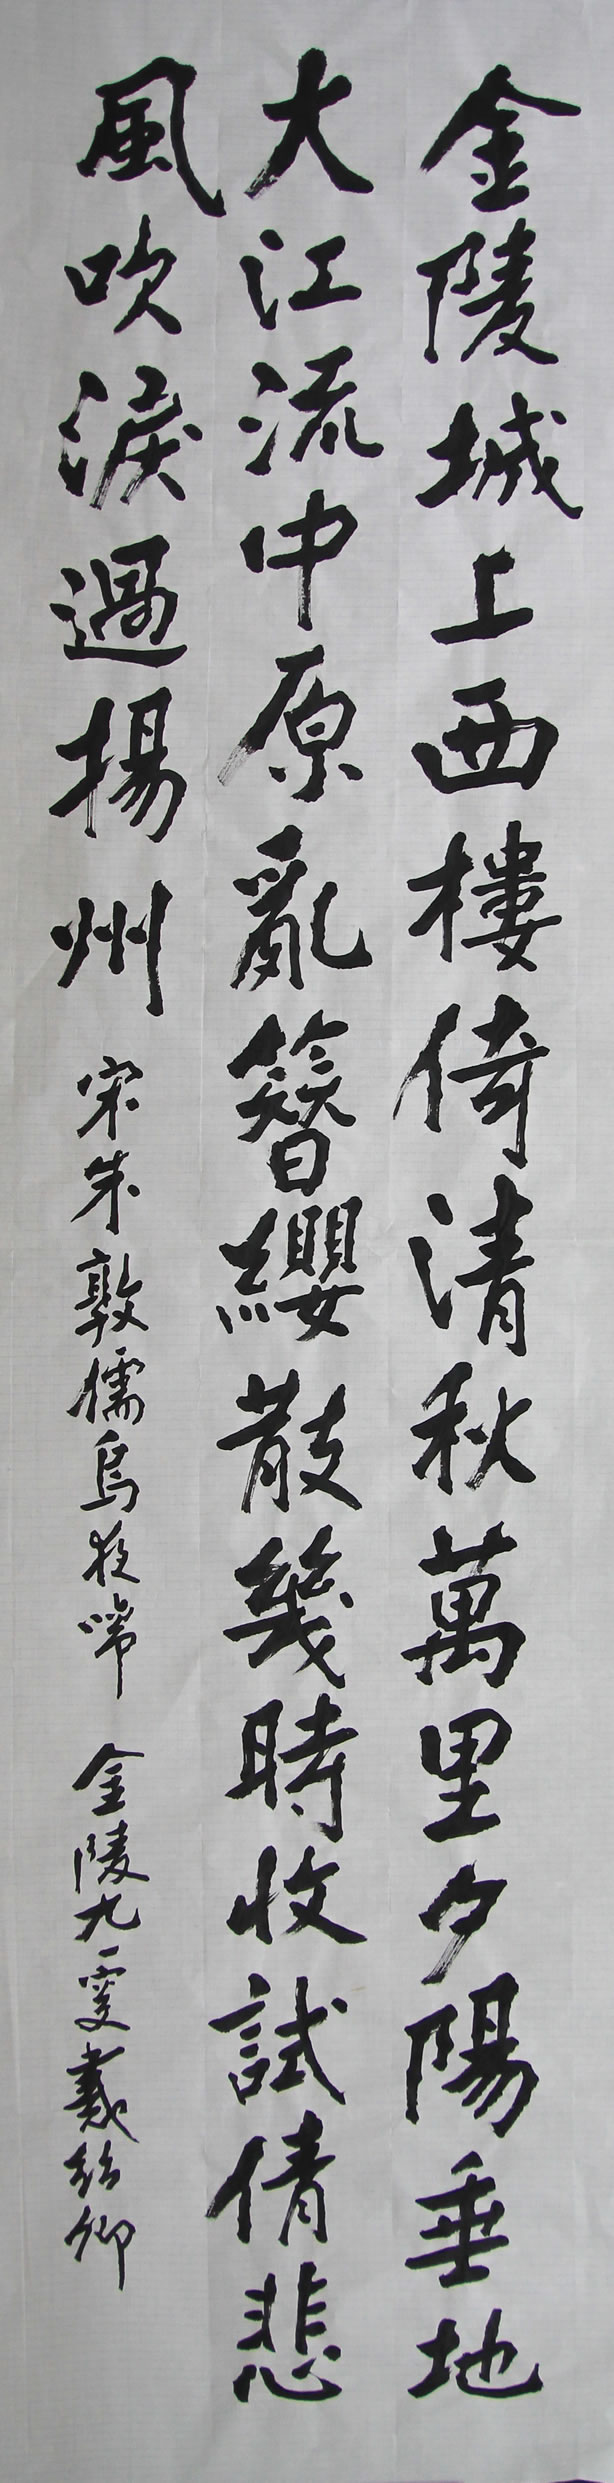 金陵城上西樓倚清秋萬里夕陽垂地
大江流中原亂簪纓散幾時收試倩悲
風吹淚過揚州
宋朱敦儒烏夜啼 金陵九雯戴紹卿